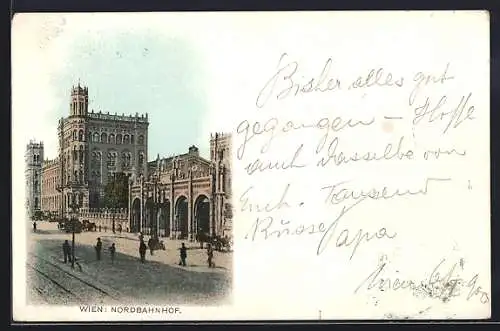 Bisher alles gut
gegangen – Hoffe
auch dasselbe von
Euch. Tausend
Küsse
Papa
Wien
WIEN: NORDBAHNHOF.